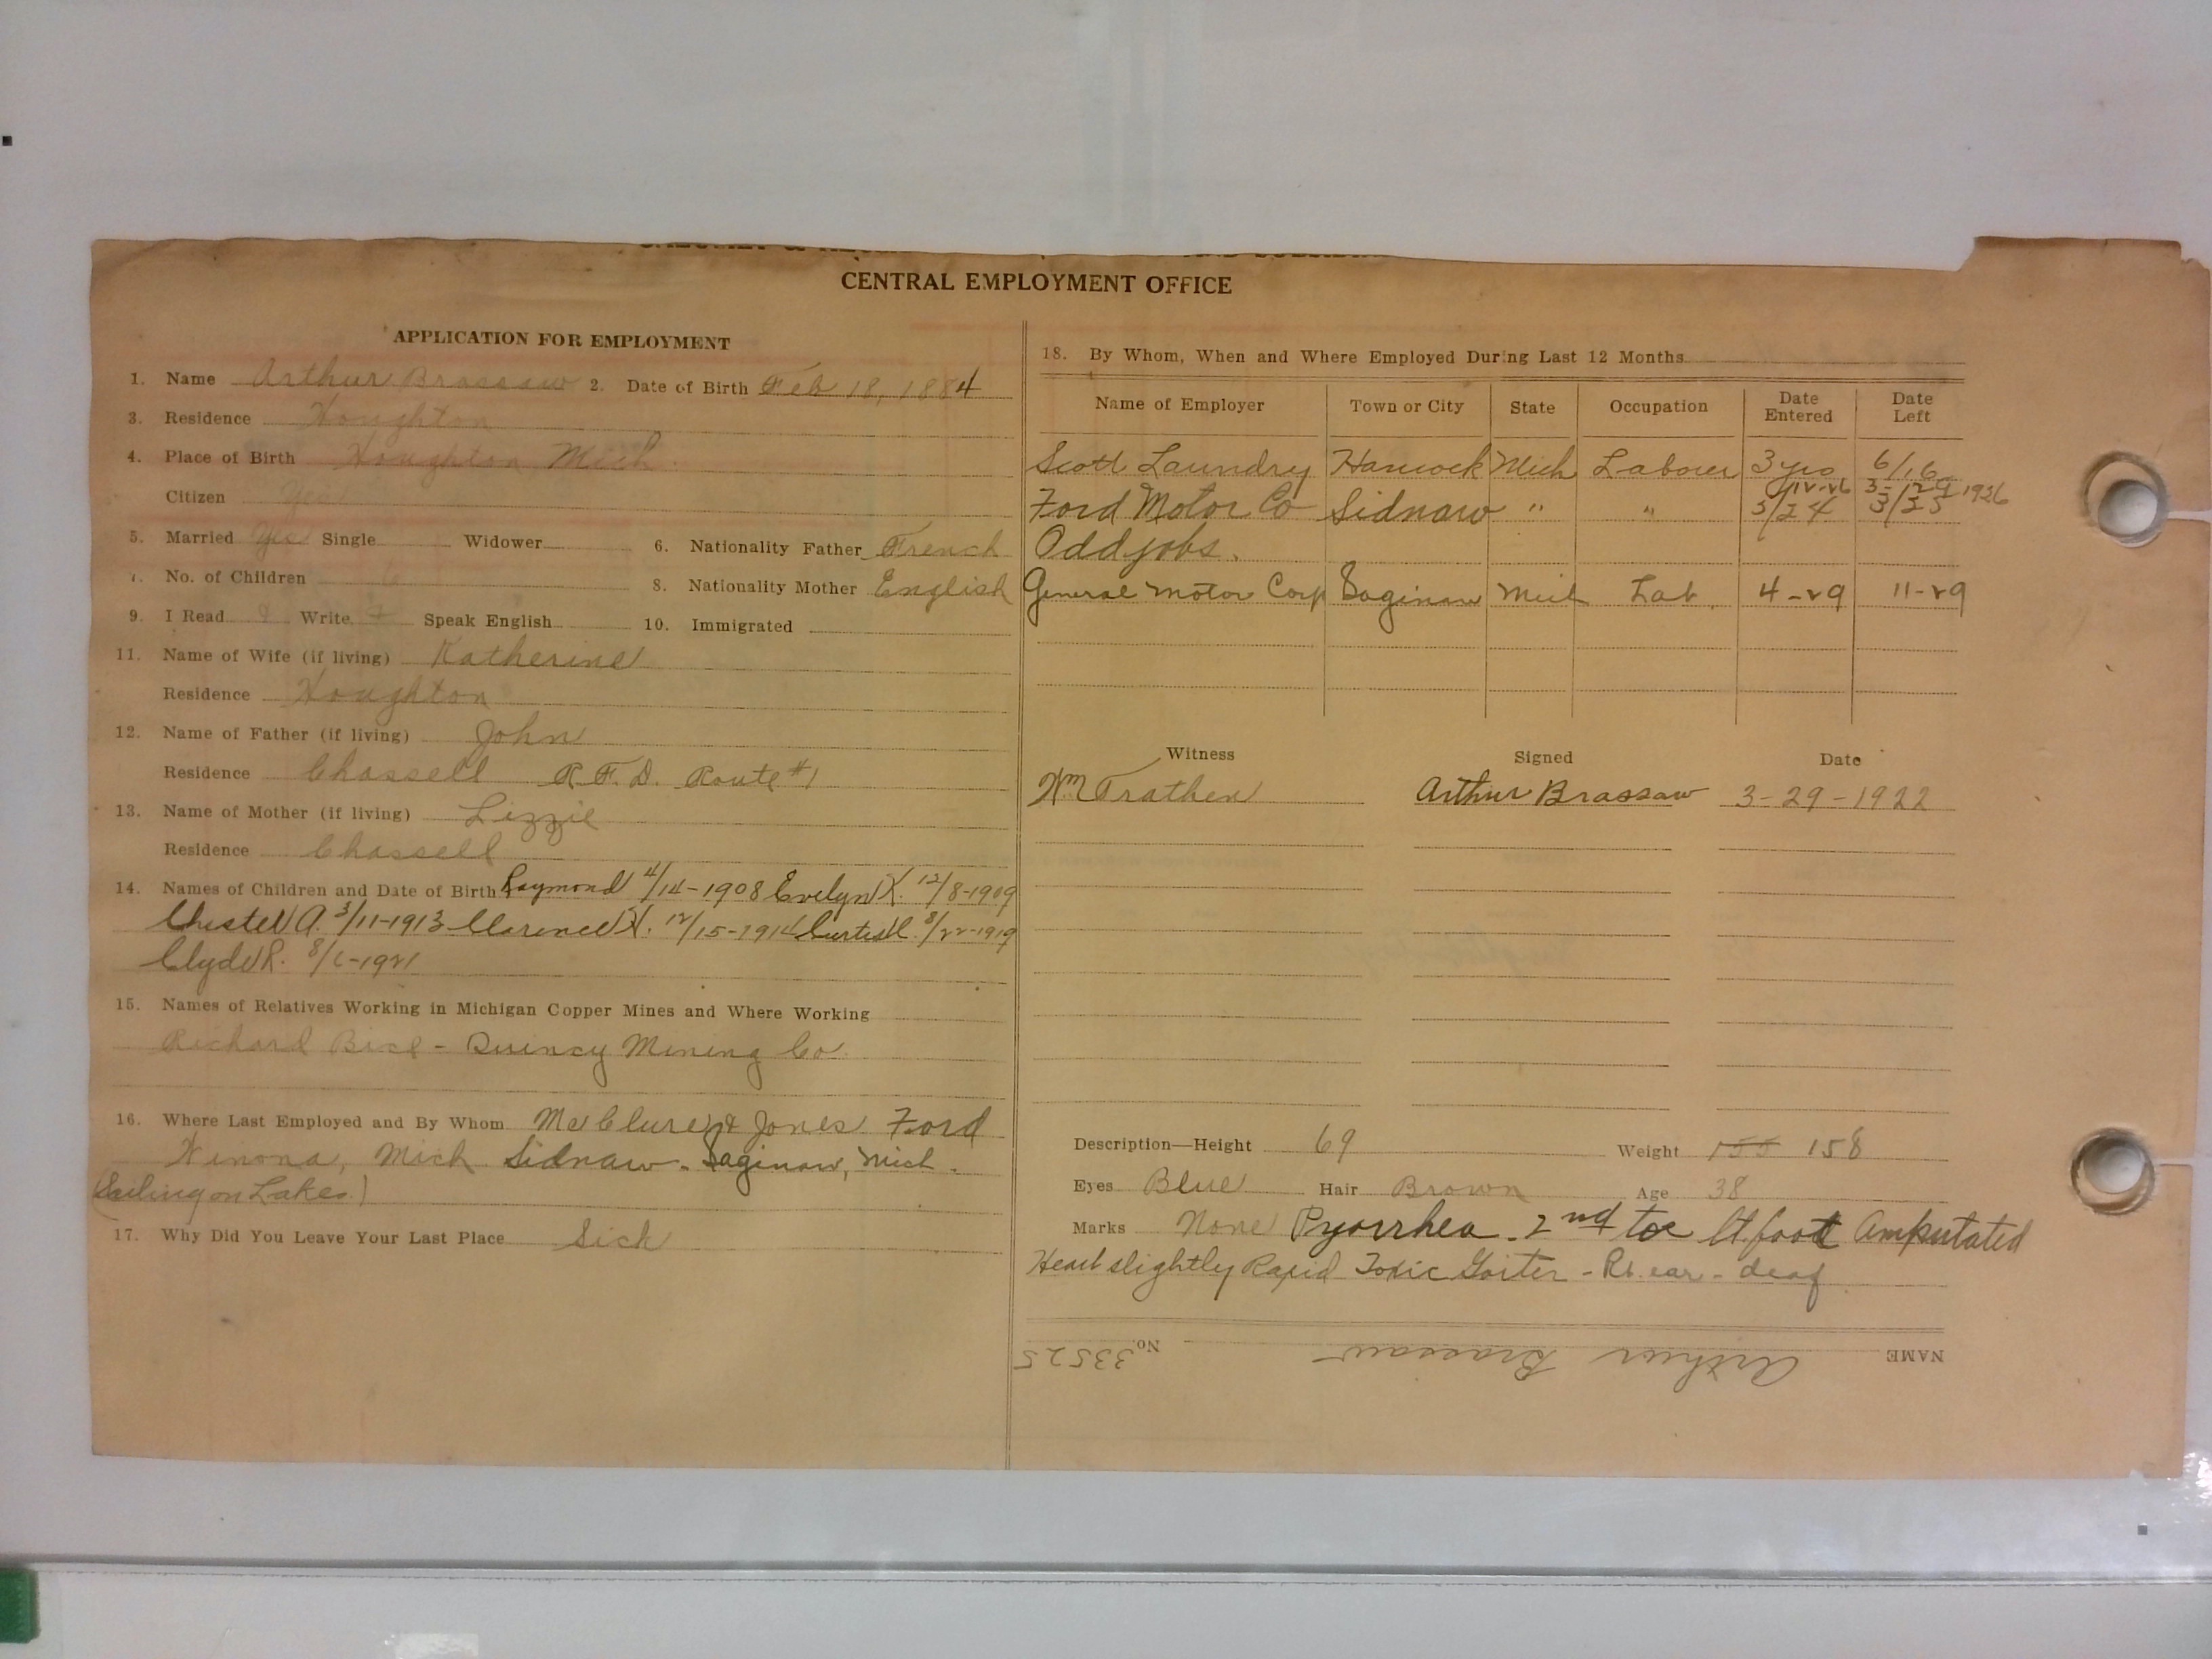 CENTRAL EMPLOYMENT OFFICE
APPLICATION FOR EMPLOYMENT
1. Name Arthur Brassaw 2. Date of Birth Feb 18, 1884
3. Residence Houghton
4. Place of Birth Houghton Mich.
Citizen Yes
5. Married Yes Single Widower 6. Nationality Father French
7. No. of Children 6 8. Nationality Mother English
9. I Read Write Speak English 10. Immigrated
11. Name of Wife (if living) Katherine
Residence Houghton
12. Name of Father (if living) John
Residence Chassell R.F.D. Route #1
13. Name of Mother (if living) Lizzie
Residence Chassell
14. Names of Children and Date of Birth Raymond 4/14-1908 Evelyn K. 12/8-1909
Chester A. 3/11-1913 Clarence H. 12/15-1914 Curtis C. 8/22-1919
Clyde R. 8/6-1921
15. Names of Relatives Working in Michigan Copper Mines and Where Working
Richard Bice - Quincy Mining Co.
16. Where Last Employed and By Whom McClure & Jones Ford
Winona, Mich Sidnaw - Saginaw, Mich.
(Sailing on Lakes)
17. Why Did You Leave Your Last Place Sick
18. By Whom, When and Where Employed During Last 12 Months
Name of Employer Town or City State Occupation Date Entered Date Left
Scott Laundry Hancock Mich Laborer 3 yrs 6/16
Ford Motor Co Sidnaw " " 5/24 3/25
Odd jobs.
General Motor Corp Saginaw Mich Lab. 4-29 11-29
Witness Signed Date
Wm Trathen Arthur Brassaw 3-29-1922
Description—Height 69 Weight 155 158
Eyes Blue Hair Brown Age 38
Marks None Pyorrhea - 2nd toe lt. foot Amputated
Heart slightly Rapid Toxic Goiter - Rt. ear - deaf
NAME Arthur Brassaw No. 33525